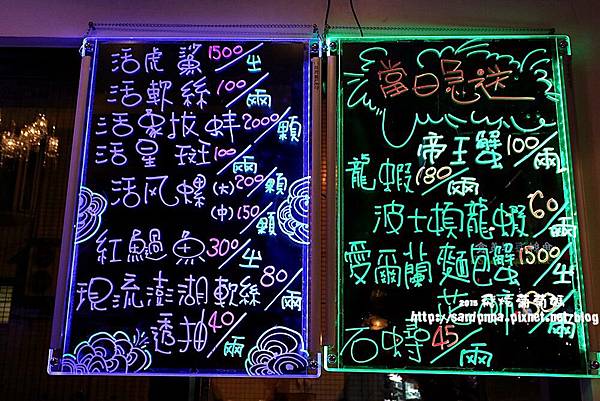 活虎鯊1500/尘
活軟絲100/兩
活象拔蚌2000/顆
活星斑100/兩
活风螺(大)200/顆
(中)150/顆
紅鰮魚300/尘
現流澎湖軟絲80/兩
透抽40/兩
當日急送
帝王蟹100/兩
龍蝦180/兩
波士頓龍蝦60/兩
愛爾蘭麵包蟹1500/尘
石蟳45/兩
http://sandynna.pixnet.net/blog